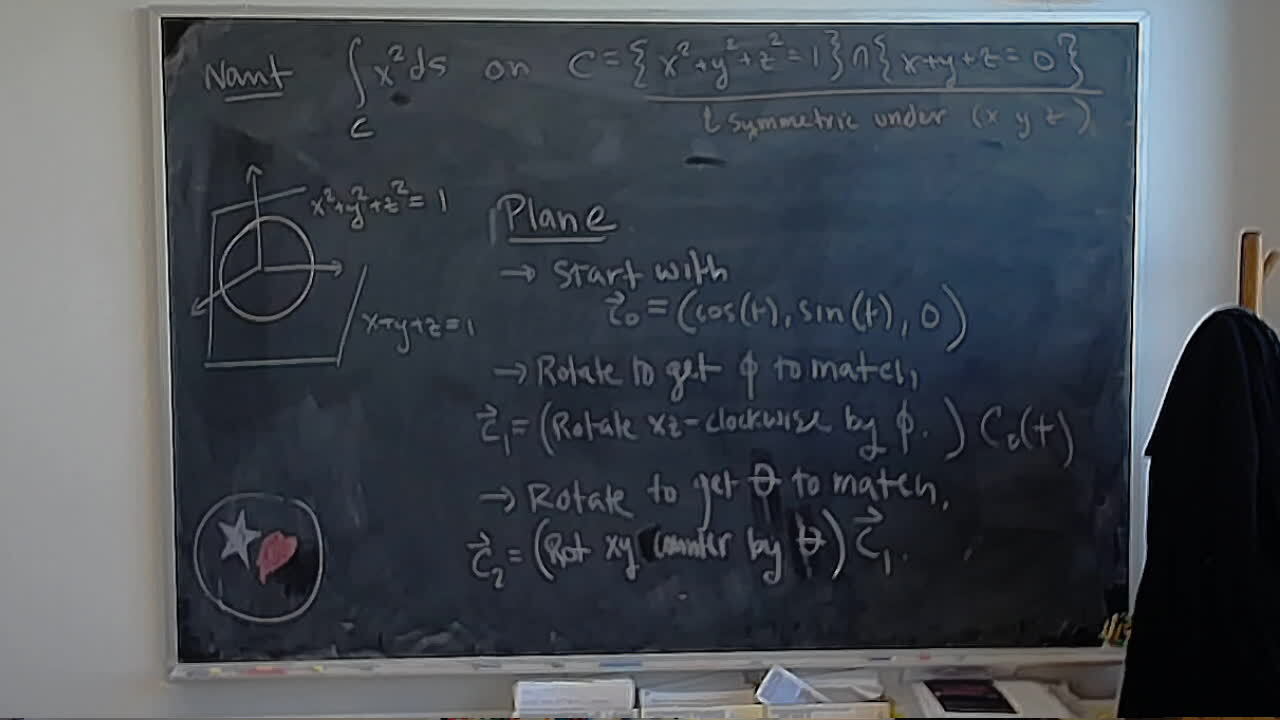 Want ∫_C x² ds on C = {x²+y²+z²=1} ∩ {x+y+z=0}
symmetric under (x y z)
x²+y²+z²=1
x+y+z=1
Plane
→ Start with
c⃗₀ = (cos(t), sin(t), 0)
→ Rotate to get φ to match,
c⃗₁ = (Rotate xz-clockwise by φ.) C₀(t)
→ Rotate to get θ to match,
c⃗₂ = (Rot xy counter by θ) c⃗₁.